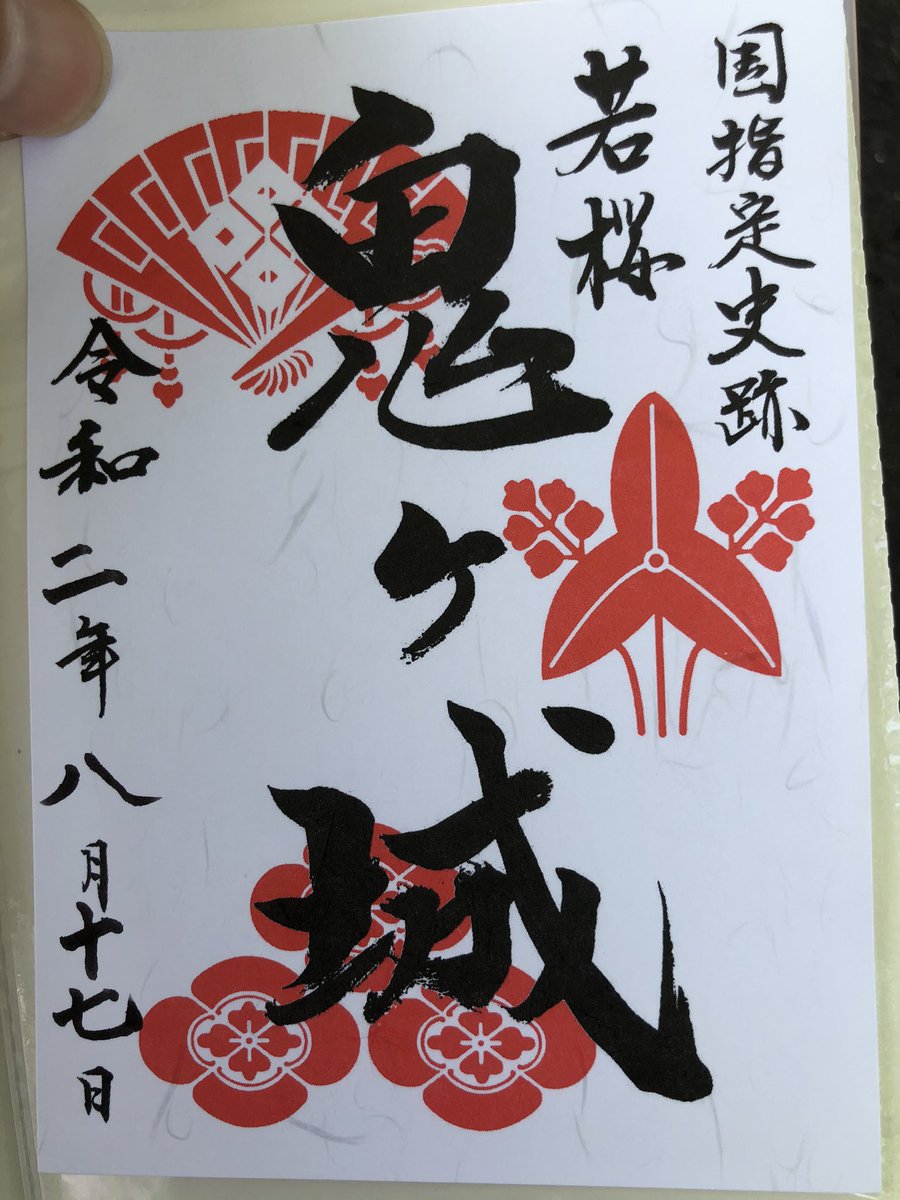 国指定史跡
若桜
鬼ヶ城
令和二年八月十七日